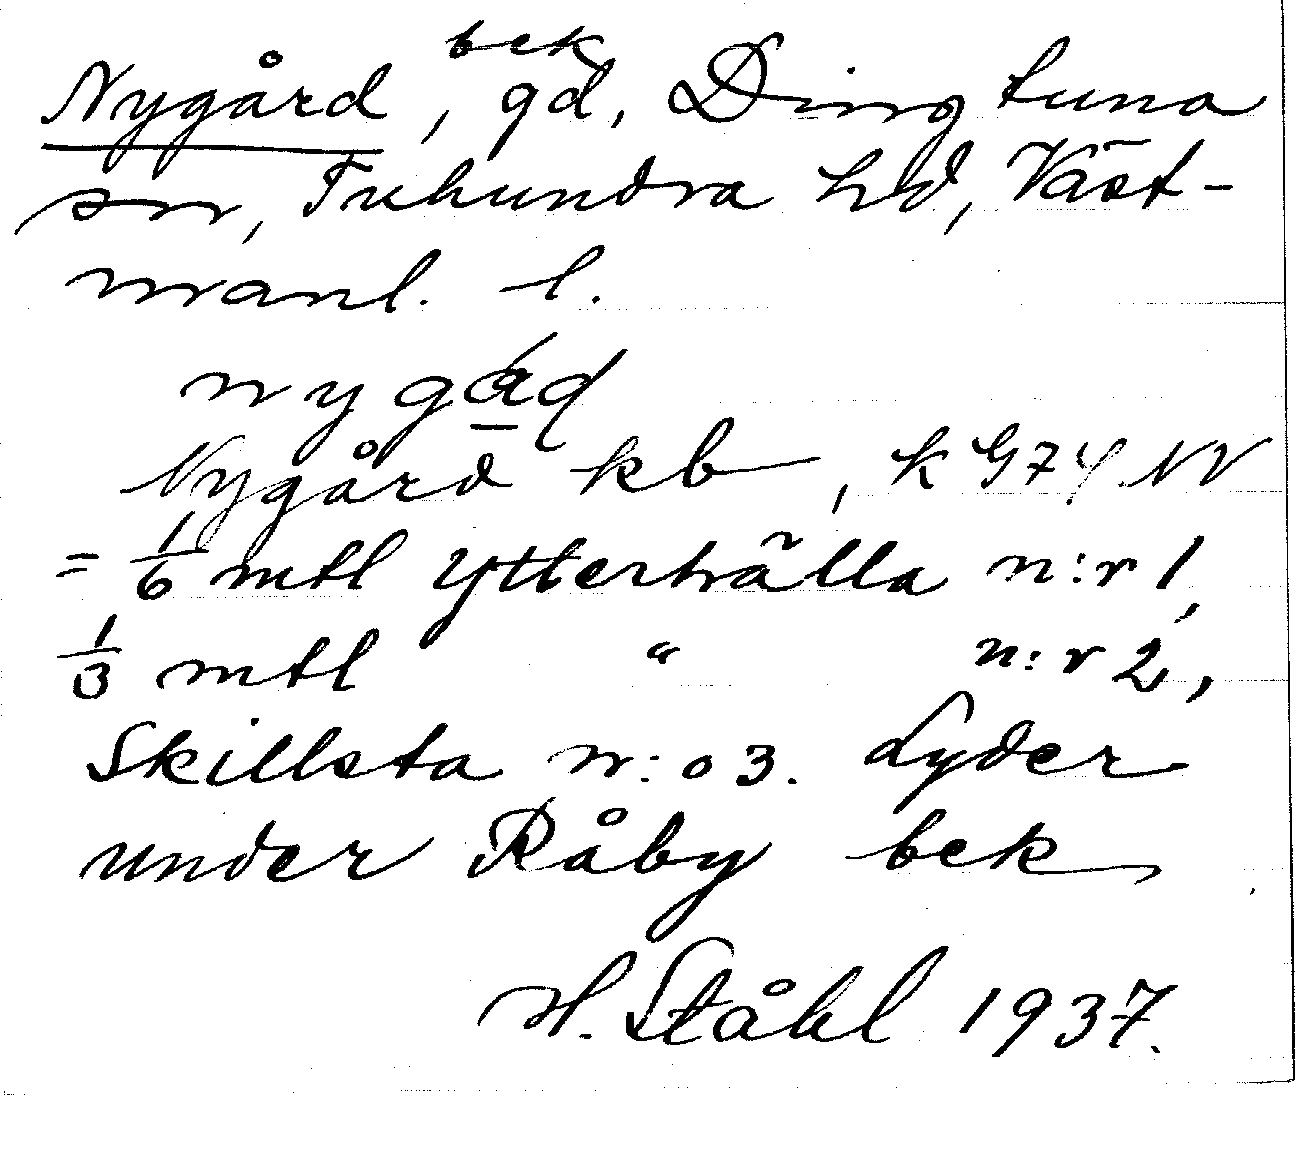 bek
Nygård, gd, Dingtuna
sn, Tuhundra hd, Väst-
manl. l.
nygá̱d
Nygård kb, k G74 NV
= 1/6 mtl Ytterhälla n:r 1,
1/3 mtl " n:r 2,
Skillsta n:o 3. Lyder
under Råby bek
H. Ståhl 1937.